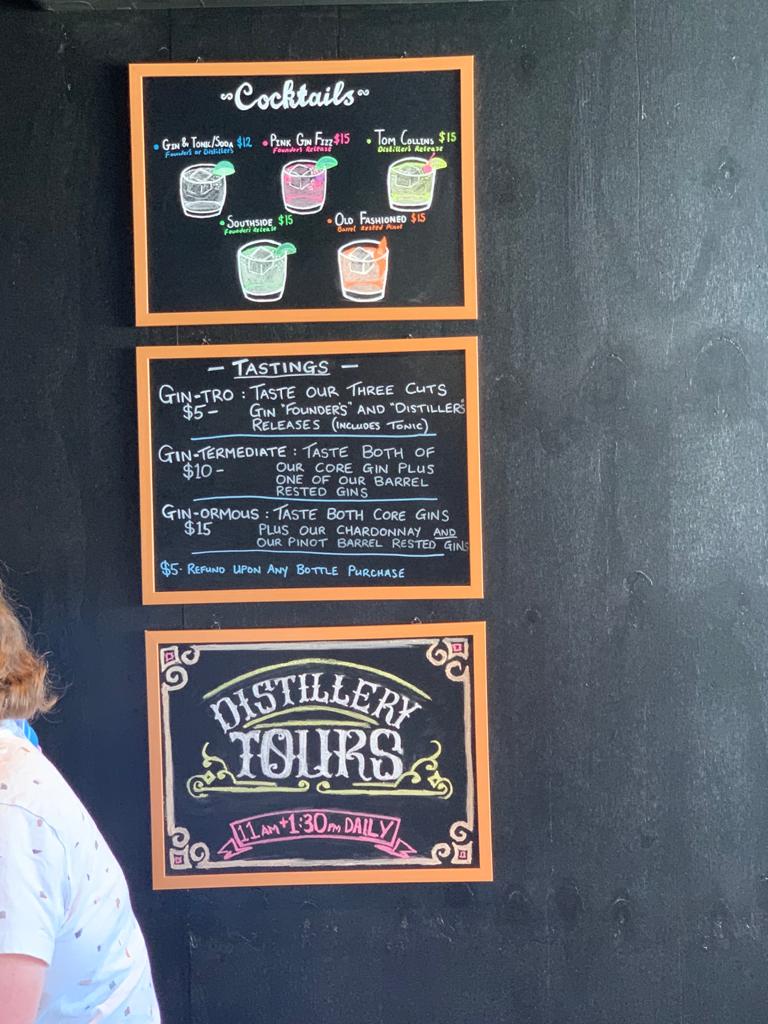 ~Cocktails~
• Gin & Tonic/Soda $12
Founders or Distillers
• Pink Gin Fizz $15
Founders Release
• Tom Collins $15
Distillers Release
• Southside $15
Founders Release
• Old Fashioned $15
Barrel Rested Pinot
— TASTINGS —
GIN-TRO : TASTE OUR THREE CUTS
$5— GIN "FOUNDER'S" AND "DISTILLER'S
RELEASES (INCLUDES TONIC)
GIN-TERMEDIATE : TASTE BOTH OF
$10 - OUR CORE GIN PLUS
ONE OF OUR BARREL
RESTED GINS
GIN-ORMOUS : TASTE BOTH CORE GINS
$15 PLUS OUR CHARDONNAY AND
OUR PINOT BARREL RESTED GINS
$5- REFUND UPON ANY BOTTLE PURCHASE
DISTILLERY
TOURS
11AM + 1:30PM DAILY